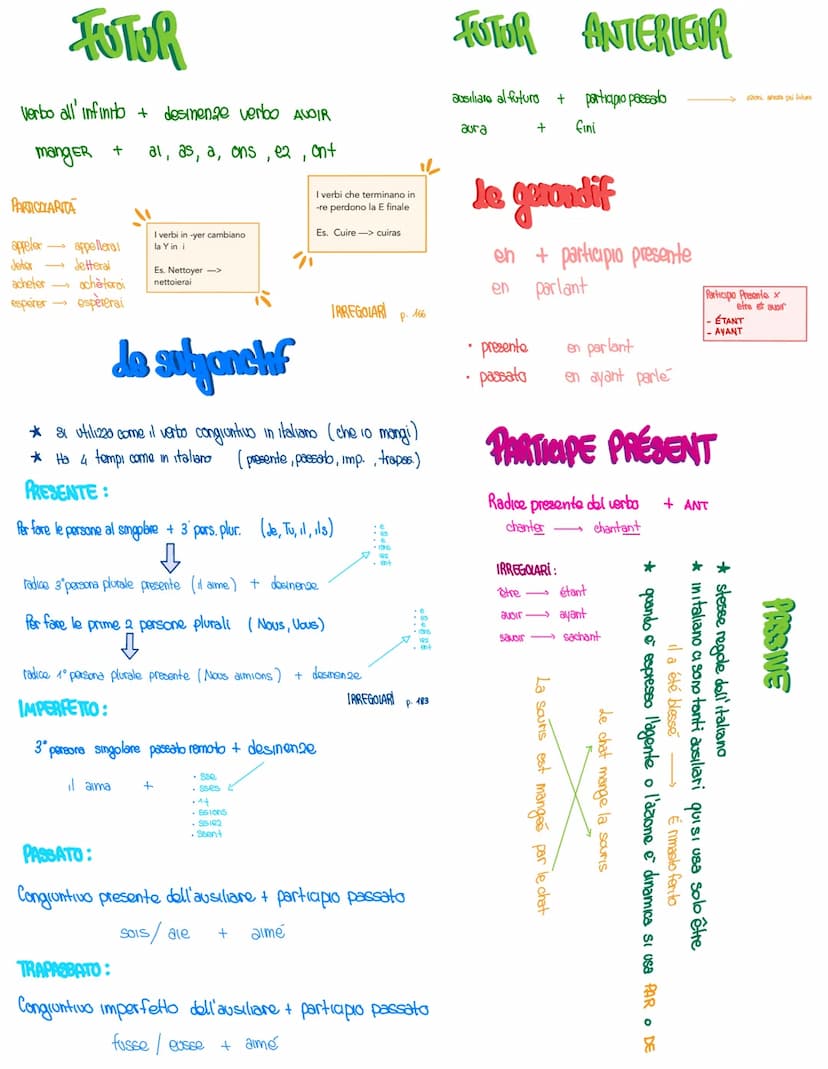 FUTUR
Verbo all'infinito + desinenze verbo AVOIR
mangER + ai, as, a, ons, ez, ont
PARTICOLARITÀ
appeler → appellerai
jeter → jetterai
acheter → achèterai
espérer → espèrerai
I verbi in -yer cambiano
la Y in i
Es. Nettoyer —>
nettoierai
I verbi che terminano in
-re perdono la E finale
Es. Cuire —> cuiras
IRREGOLARI p. 166
FUTUR ANTERIEUR
ausiliare al futuro + participio passato →
aura + fini
Le gerondif
en + participio presente
en parlant
Participio Presente x
etre et avoir
- ÉTANT
- AYANT
• presente en parlant
• passato en ayant parlé
Le subjonctif
★ si utilizza come il verbo congiuntivo in italiano (che io mangi)
★ Ha 4 tempi come in italiano (presente, passato, imp., trapas.)
PRESENTE:
Per fare le persone al singolare + 3° pers. plur. (Je, Tu, il, ils)
radice 3° persona plurale presente (il aime) + desinenze
• e
• es
• e
• ions
• iez
• ent
Per fare le prime 2 persone plurali (Nous, Vous)
radice 1° persona plurale presente (Nous aimions) + desinenze
• e
• es
• e
• ions
• iez
• ent
IRREGOLARI p. 183
IMPERFETTO:
3° persona singolare passato remoto + desinenze
il aima +
• sse
• sses
• ^t
• ssions
• ssiez
• ssent
PASSATO:
Congiuntivo presente dell'ausiliare + participio passato
sois/ aie + aimé
TRAPASSATO:
Congiuntivo imperfetto dell'ausiliare + participio passato
fusse/ eusse + aimé
PARTICIPE PRÉSENT
Radice presente del verbo + ANT
chanter → chantant
IRREGOLARI:
être → étant
avoir → ayant
savoir → sachant
PASSIVE
★ stesse regole dell'italiano
★ in italiano ci sono tanti ausiliari qui si usa solo être
il a été blessé → È rimasto ferito
★ quando è espresso l'agente o l'azione è dinamica si usa PAR o DE
Le chat mange la souris
La souris est mangée par le chat